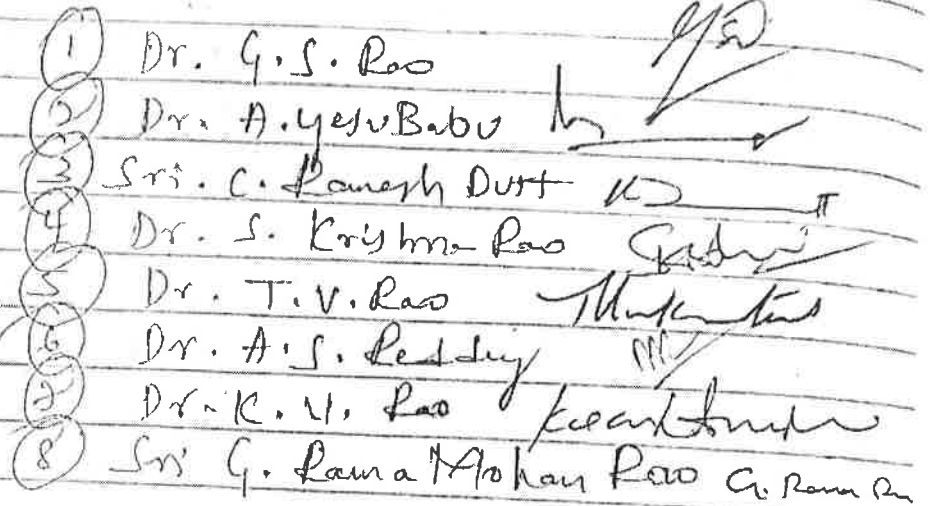 1 Dr. G.S. Rao
2 Dr. A. Yesu Babu
3 Sri. C. Ramesh Dutt
4 Dr. S. Krishna Rao
5 Dr. T.V. Rao
6 Dr. A.S. Reddy
7 Dr. K.V. Rao
8 Sri G. Rama Mohan Rao G. Rama